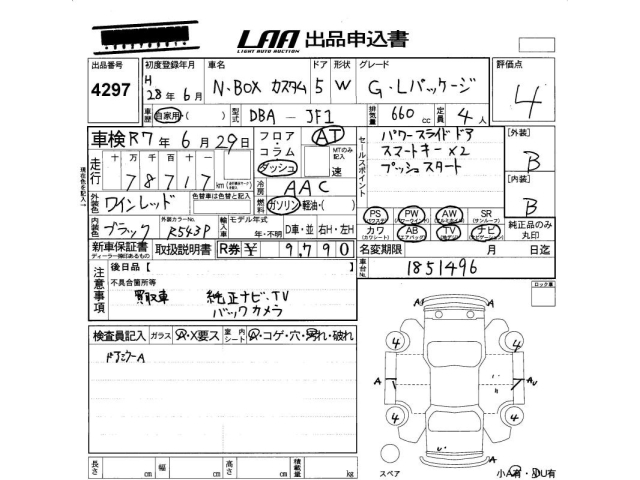 LAA 出品申込書
LIGHT AUTO AUCTION
出品番号 4297
初度登録年月 H 28年6月
車名 N・BOX カスタム
ドア 5 形状 W
グレード G・Lパッケージ
評価点 4
車歴 自家用・( )
型式 DBA － JF1
排気量 660 cc
定員 4人
車検 R7年6月29日
走行 十万千百十 78717 km
フロア・コラム・ダッシュ
AT
MTのみ記入 速
セールスポイント
パワースライドドア
スマートキー×2
プッシュスタート
[外装] B
[内装] B
外装色 ワインレッド
色替車は色替と記入
冷房 AAC
燃料 ガソリン・軽油・( )
内装色 ブラック
外装カラーNo. R543P
輸入車 モデル年式 年・不明 D車・並 右H・左H
PS PW AW SR
カワ AB TV ナビ
純正品のみ丸印
新車保証書 取扱説明書 R券 ¥ 9,790
ディーラー捺印あるもの
名変期限 月 日迄
車台No. 1851496
注意事項
後日品【 】
不具合箇所等
買取車 純正ナビ、TV
バックカメラ
ロック車
検査員記入 ガラス A・X要ス 室内シート A・コゲ・穴・汚れ・破れ
ドアミラーA
A A
4 4
A A
4 4
A
長さ cm 幅 cm 高さ cm 積載量 kg
スペア
小A有・小U有